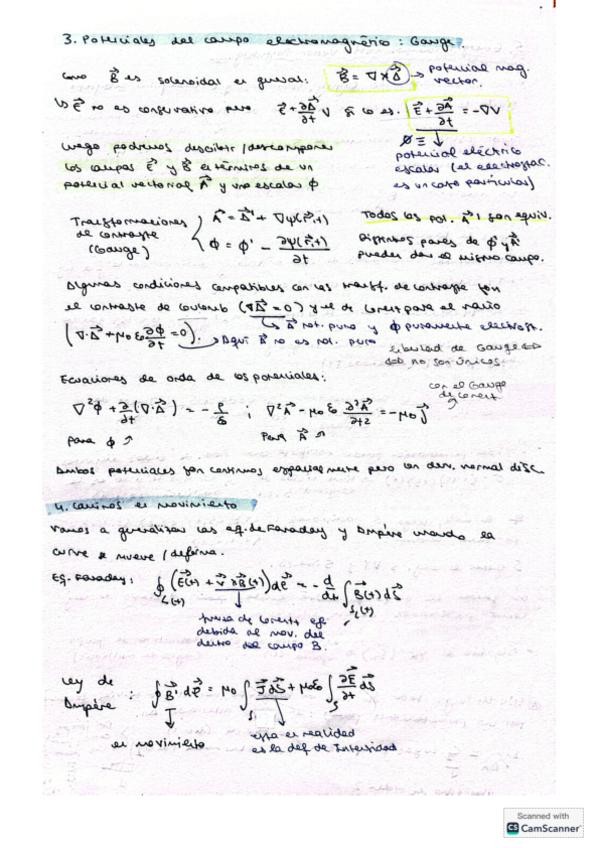 3. Potenciales del campo electromagnético: Gauge.
Como B⃗ es solenoidal en general: B⃗ = ∇ × A⃗ → potencial mag. vector.
E⃗ no es conservativo pero E⃗ + ∂A⃗/∂t sí lo es. E⃗ + ∂A⃗/∂t = -∇V
Luego podemos describir/descomponer
los campos E⃗ y B⃗ en términos de un
potencial vectorial A⃗ y uno escalar ϕ
∅ ≡ potencial eléctrico
escalar (el electrostát.
es un caso particular)
Transformaciones
de contraste
(Gauge)
A⃗ = A⃗' + ∇ψ(r⃗,t)
ϕ = ϕ' - ∂ψ(r⃗,t)/∂t
Todos los pot. A⃗' son equiv.
Distintos pares de ϕ' y A⃗'
pueden dar el mismo campo.
Algunas condiciones compatibles con las transf. de contraste son
el contraste de Coulomb (∇A⃗ = 0) y el de Lorentz para el vacío
(∇·A⃗ + μ₀ε₀ ∂ϕ/∂t = 0).
↳ A⃗ rot. puro y ϕ puramente electrost.
→ Aquí A⃗ no es rot. puro
libertad de Gauge ⇔
⇔ no son únicos.
Ecuaciones de onda de los potenciales:
con el Gauge
de Lorentz
∇²ϕ + ∂/∂t (∇·A⃗) = - ρ/ε₀ ; ∇²A⃗ - μ₀ε₀ ∂²A⃗/∂t² = -μ₀ j⃗
para ϕ ↗ para A⃗ ↗
Ambos potenciales son continuos espacialmente pero con deriv. normal disc.
4. Caminos en movimiento
Vamos a generalizar las eq. de Faraday y Ampère cuando la
curva se mueve/deforma.
Eq. Faraday: ∮_L(t) (E⃗(t) + v⃗ × B⃗(t)) dℓ⃗ = - d/dt ∫_S_L(t) B⃗(t) dS⃗
fuerza de Lorentz
debida al mov. del
dentro del campo B.
Ley de
Ampère : ∮ B⃗' dℓ⃗ = μ₀ ∫_S J⃗ dS⃗ + μ₀ε₀ ∫_S ∂E⃗/∂t dS⃗
en movimiento
esta en realidad
es la def de Intensidad
Scanned with
CS CamScanner